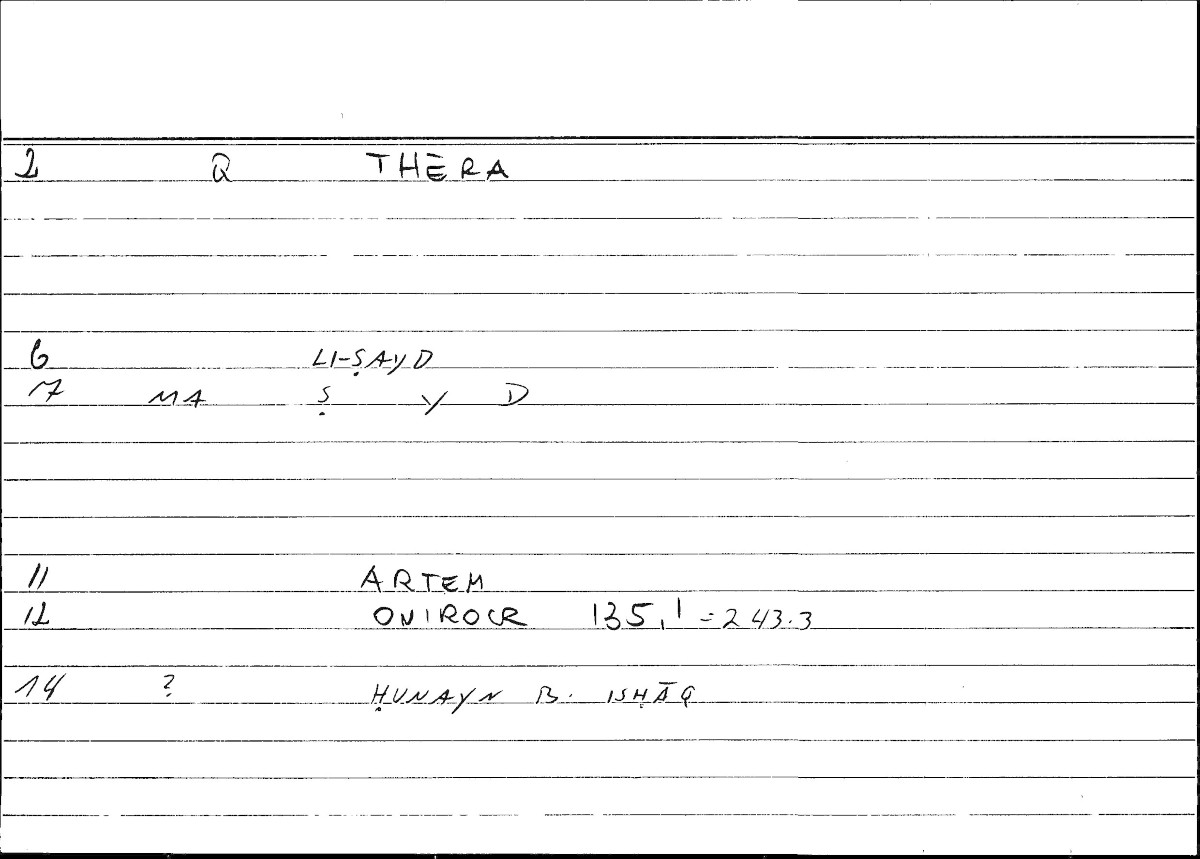 2 Q THĒRA
6 LI-ṢAYD
7 MA Ṣ Y D
11 ARTEM
12 ONIROCR 135,1 = 243.3
14 ? ḤUNAYN B. ISḤĀQ